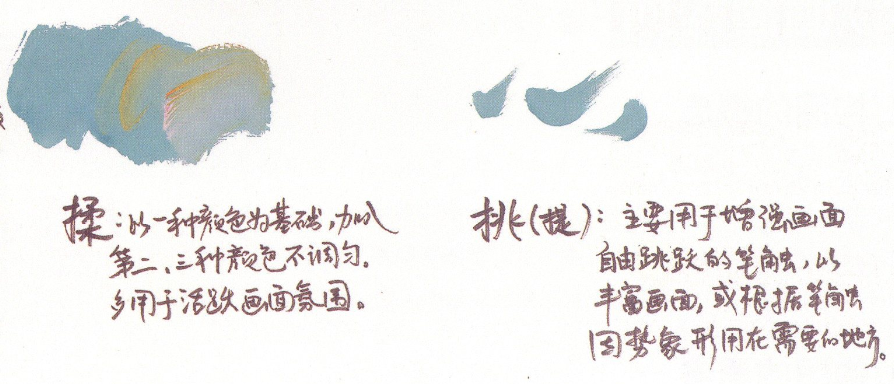 揉:以一种颜色为基础,加入
第二、三种颜色不调匀。
多用于活跃画面氛围。
挑(提):主要用于增强画面
自由跳跃的笔触,以
丰富画面,或根据笔触
因势象形用在需要的地方。